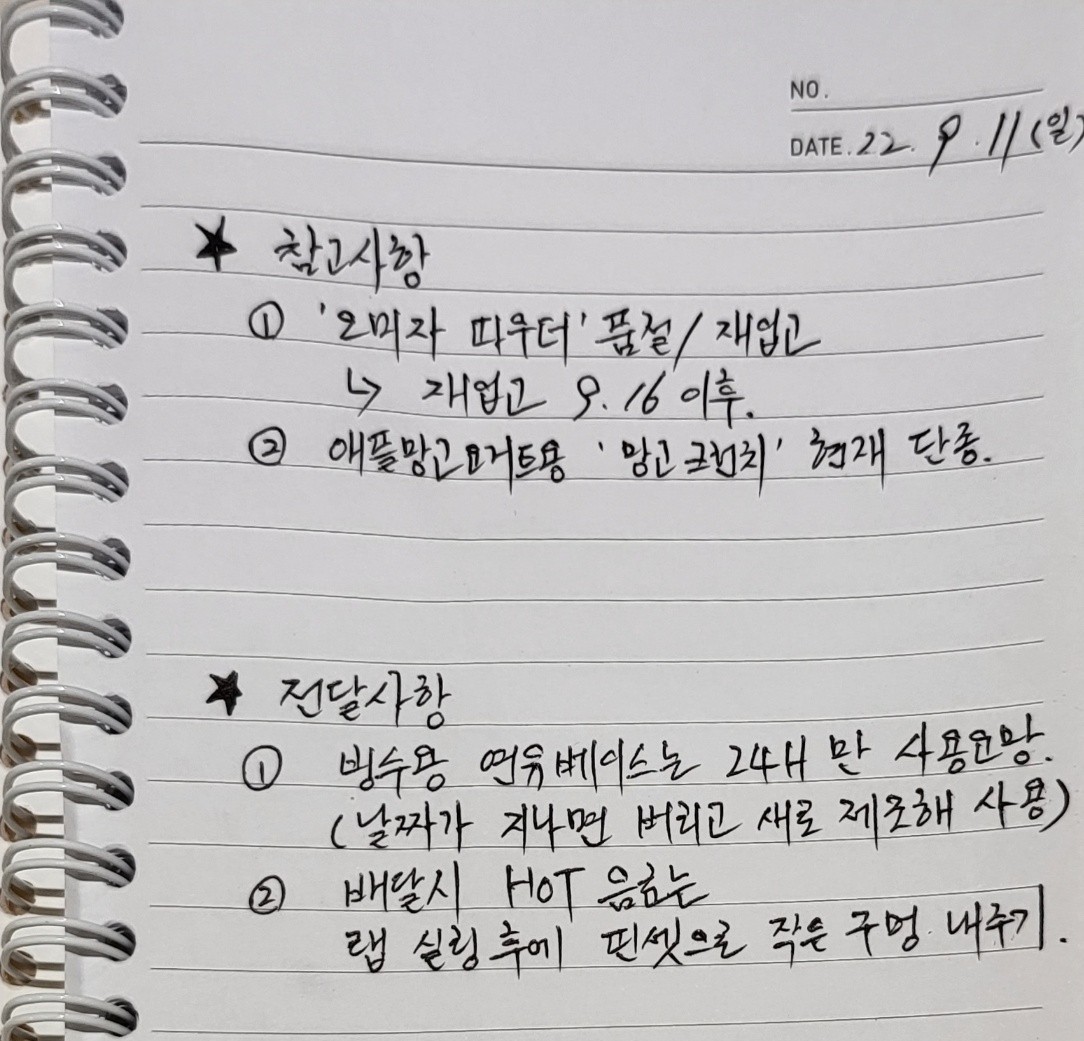 NO.
DATE. 22. 9. 11 (일)
★ 참고사항
① '오미자 파우더' 품절/재입고
↳ 재입고 9. 16 이후.
② 애플망고요거트용 '망고크런치' 현재 단종.
★ 전달사항
① 빙수용 연유베이스는 24H 만 사용요망.
(날짜가 지나면 버리고 새로 제조해 사용)
② 배달시 HOT 음료는
랩 실링 후에 핀셋으로 작은 구멍 내주기.